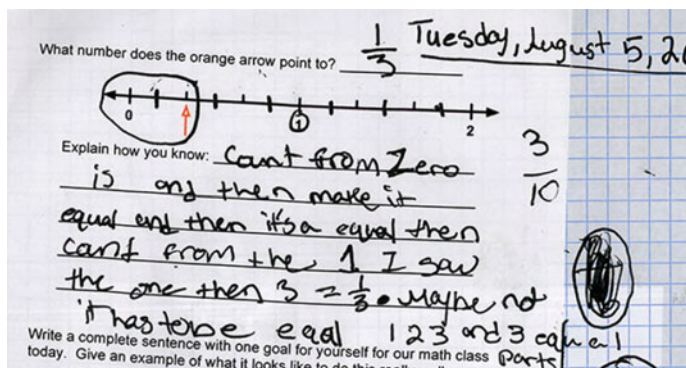 1/3 Tuesday, August 5, 20
What number does the orange arrow point to?
0 1 2
3/10
Explain how you know: Cant from Zero
is and then make it
equal and then it's a equal then
cant from the 1 I saw
the one then 3 = 1/3. Maybe not
it has to be eqal 1 2 3 and 3 equel
parts
Write a complete sentence with one goal for yourself for our math class
today. Give an example of what it looks like to do this